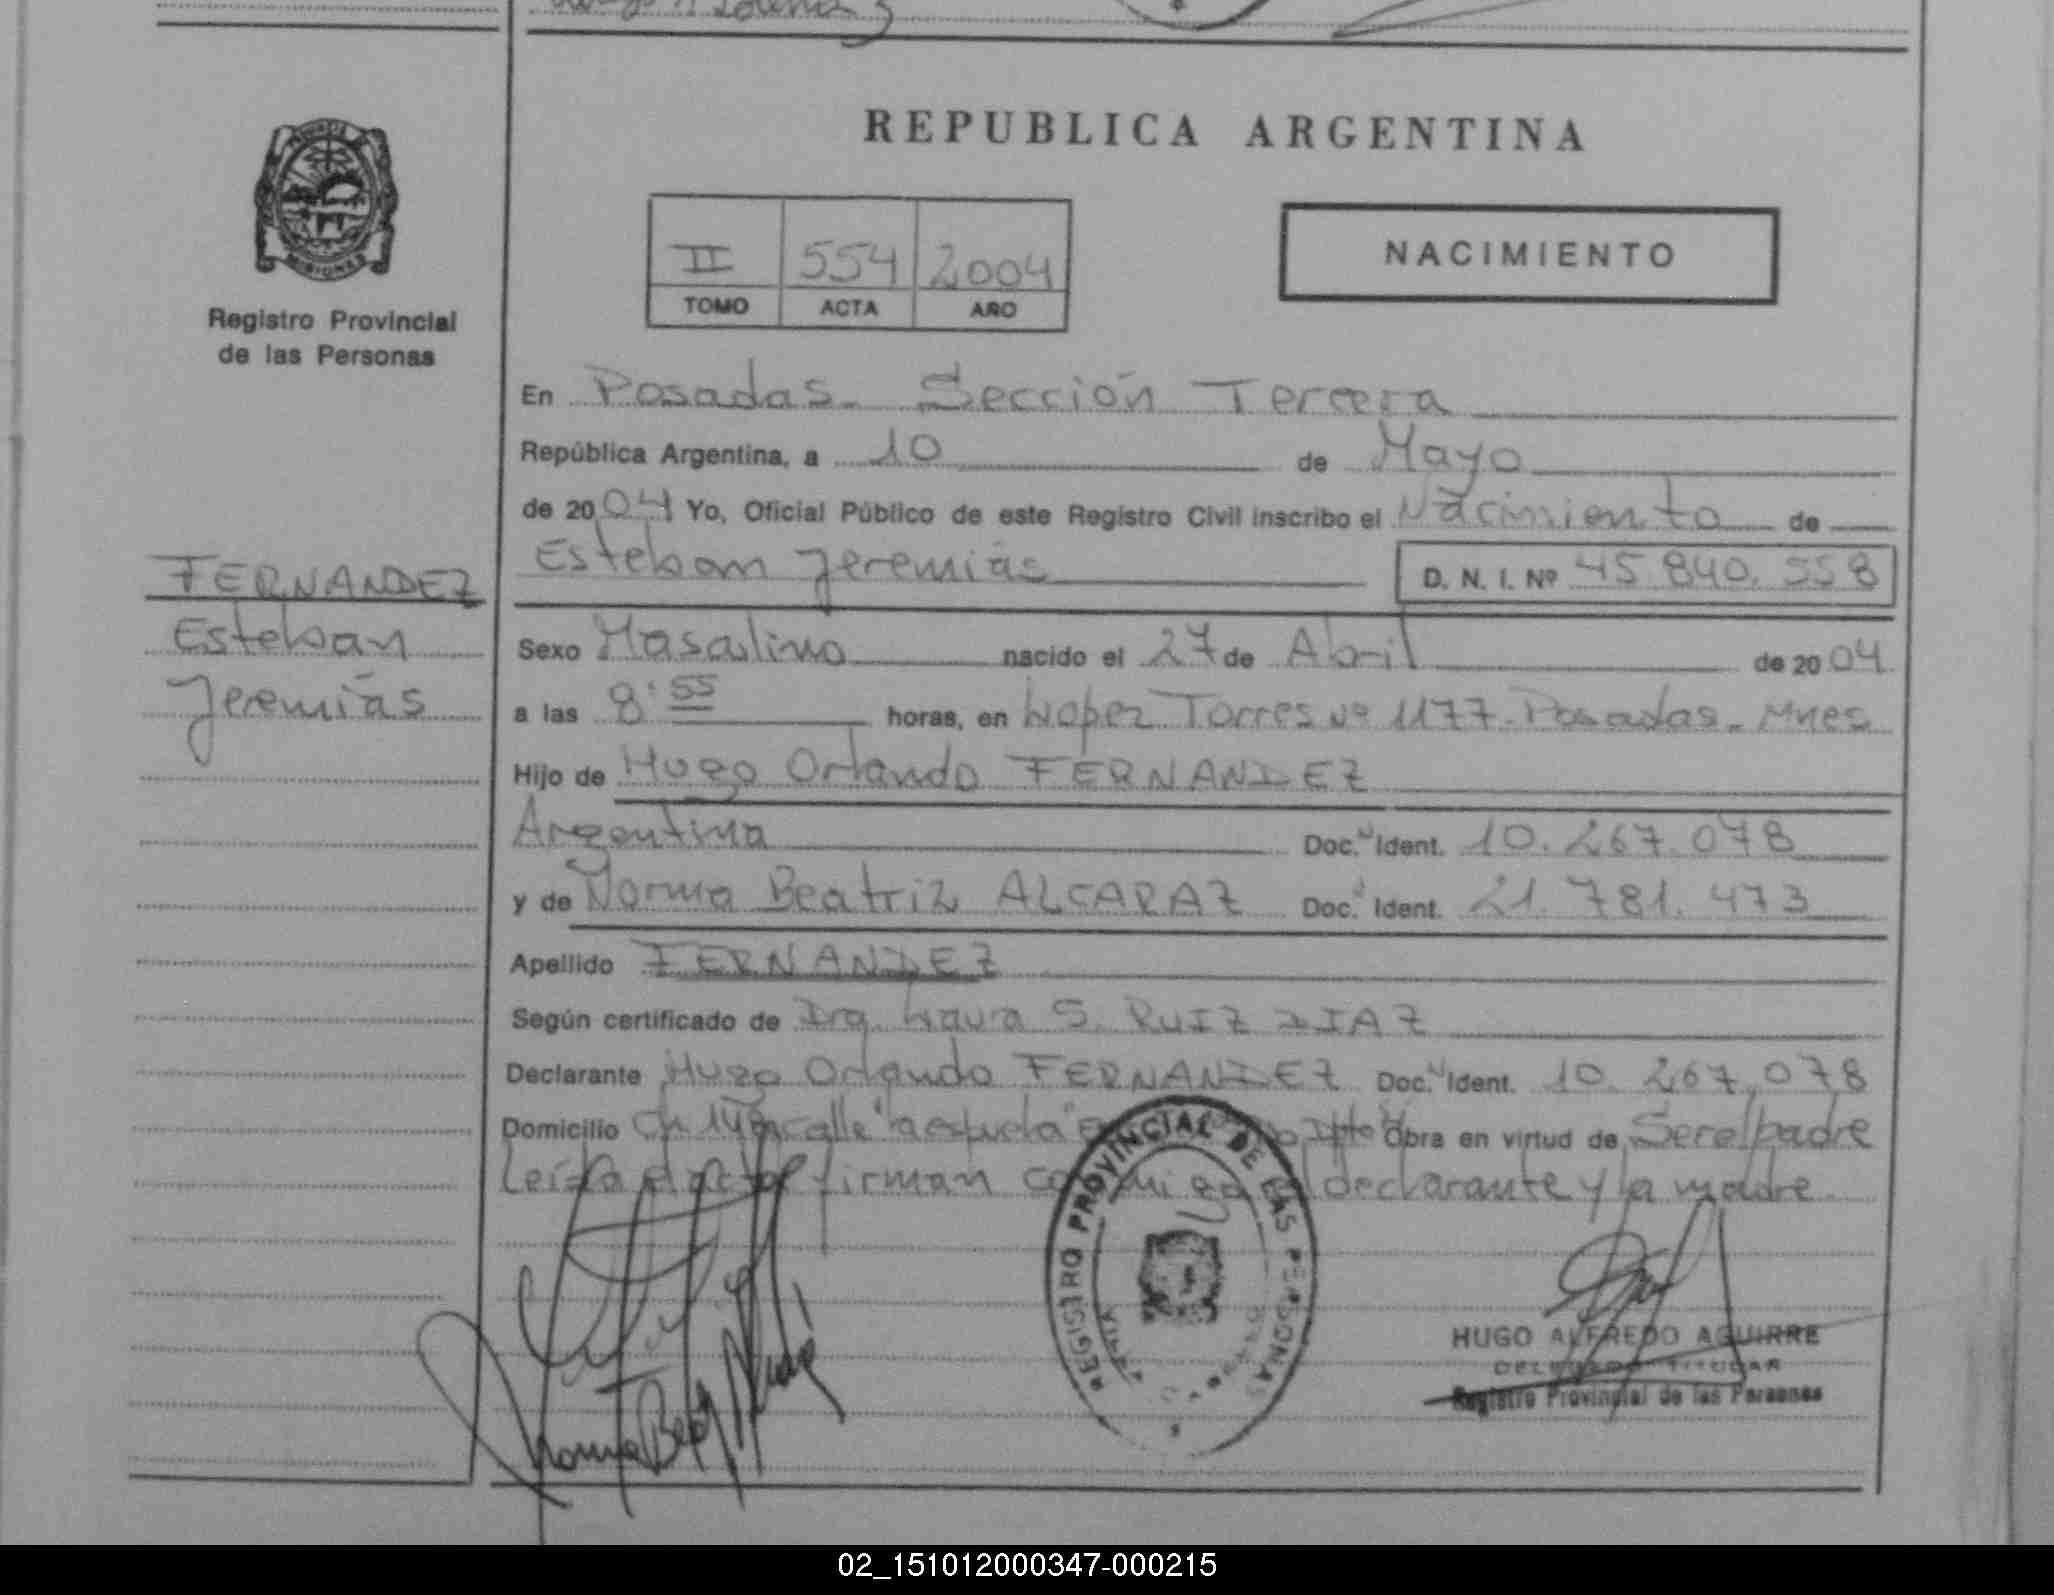 REPUBLICA ARGENTINA
MISIONES
Registro Provincial
de las Personas
II 554 2004
TOMO ACTA AÑO
NACIMIENTO
En Posadas - Sección Tercera
República Argentina, a 10 de Mayo
de 2004 Yo, Oficial Público de este Registro Civil inscribo el Nacimiento de
Esteban Jeremías D. N. I. Nº 45.840.558
FERNANDEZ
Esteban
Jeremías
Sexo Masculino nacido el 27 de Abril de 2004
a las 8:55 horas, en Lopez Torres Nº 1177 - Posadas - Mnes
Hijo de Hugo Orlando FERNANDEZ
Argentina Doc. Ident. 10.267.078
y de Norma Beatriz ALCARAZ Doc. Ident. 21.781.473
Apellido FERNANDEZ
Según certificado de Dra. Laura S. RUIZ DIAZ
Declarante Hugo Orlando FERNANDEZ Doc. Ident. 10.267.078
Domicilio Ch calle Obra en virtud de Ser el padre
Leída el acta firman conmigo el declarante y la madre
REGISTRO PROVINCIAL DE LAS PERSONAS
HUGO ALFREDO AGUIRRE
DELEGADO TITULAR
Registro Provincial de las Personas
02_151012000347-000215